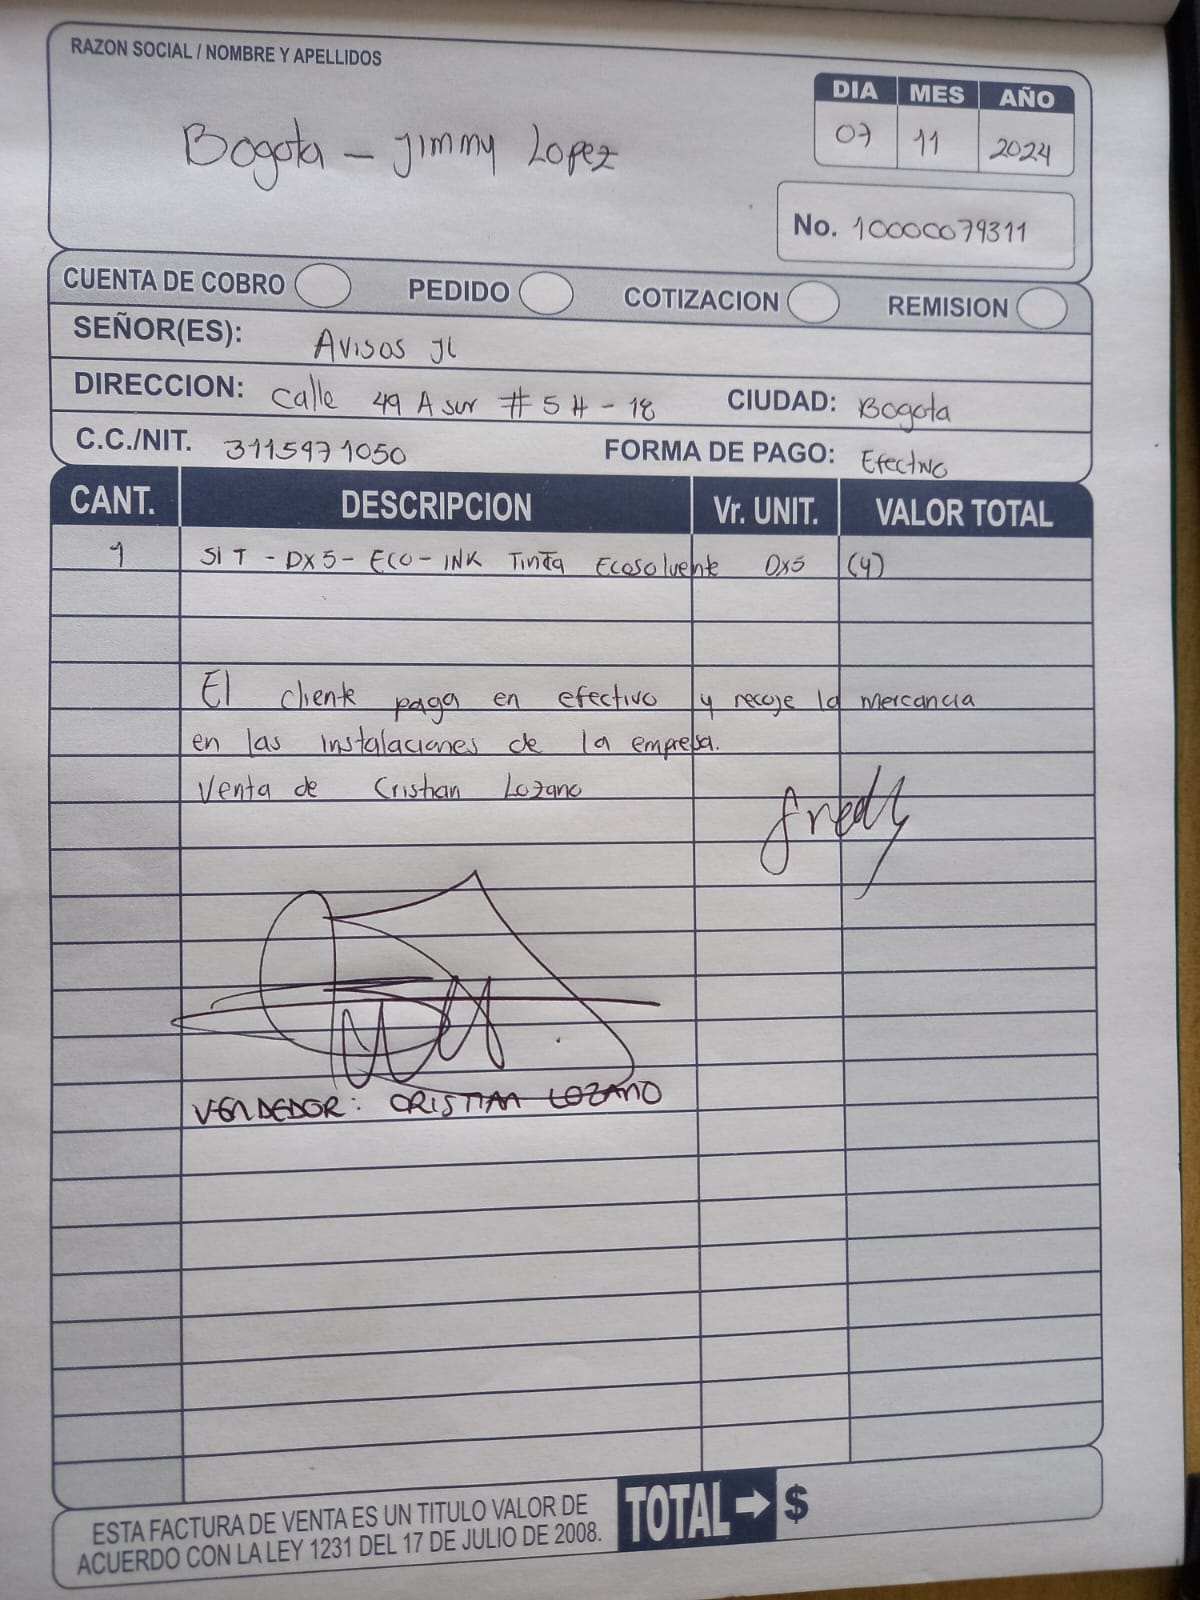 RAZON SOCIAL / NOMBRE Y APELLIDOS
DIA MES AÑO
07 11 2024
Bogota - Jimmy Lopez
No. 10000079311
CUENTA DE COBRO PEDIDO COTIZACION REMISION
SEÑOR(ES): Avisos JL
DIRECCION: calle 49 A sur # 5 H - 18 CIUDAD: Bogota
C.C./NIT. 3115971050 FORMA DE PAGO: Efectivo
CANT. DESCRIPCION Vr. UNIT. VALOR TOTAL
1 SIT - DX5 - ECO - INK Tinta Ecosolvente DX5 (4)
El cliente paga en efectivo y recoje la mercancia
en las instalaciones de la empresa.
Venta de Cristian Lozano
fredy
VENDEDOR: CRISTIAN LOZANO
ESTA FACTURA DE VENTA ES UN TITULO VALOR DE
ACUERDO CON LA LEY 1231 DEL 17 DE JULIO DE 2008.
TOTAL → $